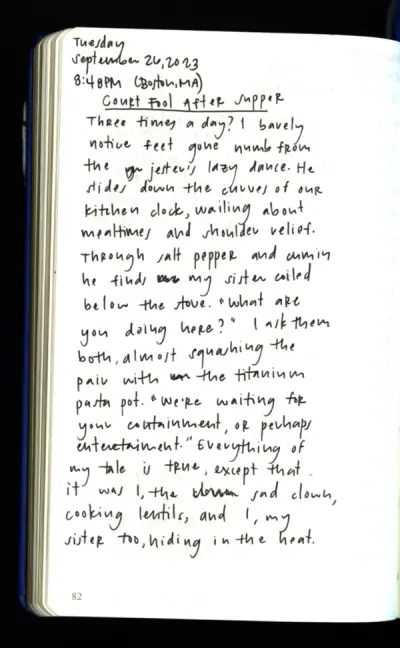 Tuesday
September 26, 2023
8:48PM (Boston, MA)
Court Fool After Supper
Three times a day? I barely
notice feet gone numb from
the jester's lazy dance. He
slides down the curves of our
kitchen clock, wailing about
mealtimes and shoulder relief.
Through salt pepper and cumin
he finds my sister coiled
below the stove. "What are
you doing here?" I ask them
both, almost squashing the
pair with the titanium
pasta pot. "We're waiting for
your containment, or perhaps
entertainment." Everything of
my tale is true, except that
it was I, the sad clown,
cooking lentils, and I, my
sister too, hiding in the heat.
82